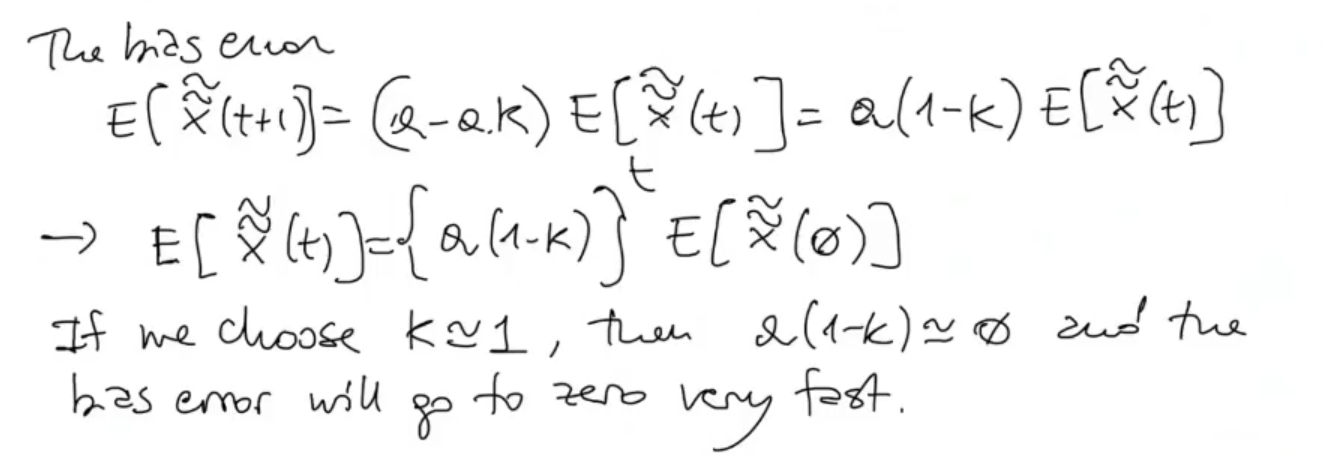 The bias error
E[x̃̃(t+1)] = (a-a.k) E[x̃̃(t)] = a(1-k) E[x̃̃(t)]
→ E[x̃̃(t)] = {a(1-k)}^t E[x̃̃(∅)]
If we choose k≃1, then a(1-k)≃∅ and the
bias error will go to zero very fast.